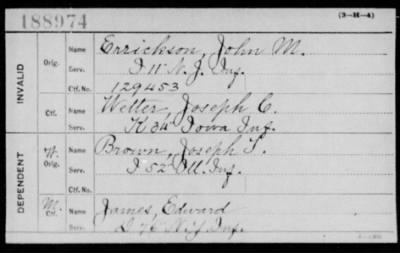 188974
(3-H-4)
INVALID
Orig.
Name Errickson, John M.
Serv. I 11" N.J. Inf.
Ctf. No. 129453
Ctf.
Name Welter, Joseph C.
Serv. K 34" Iowa Inf.
DEPENDENT
W.
Orig.
Name Brown, Joseph
Serv. I 52" Ill. Inf.
Ctf. No.
M.
Ctf.
Name James, Edward
Serv. Inf.